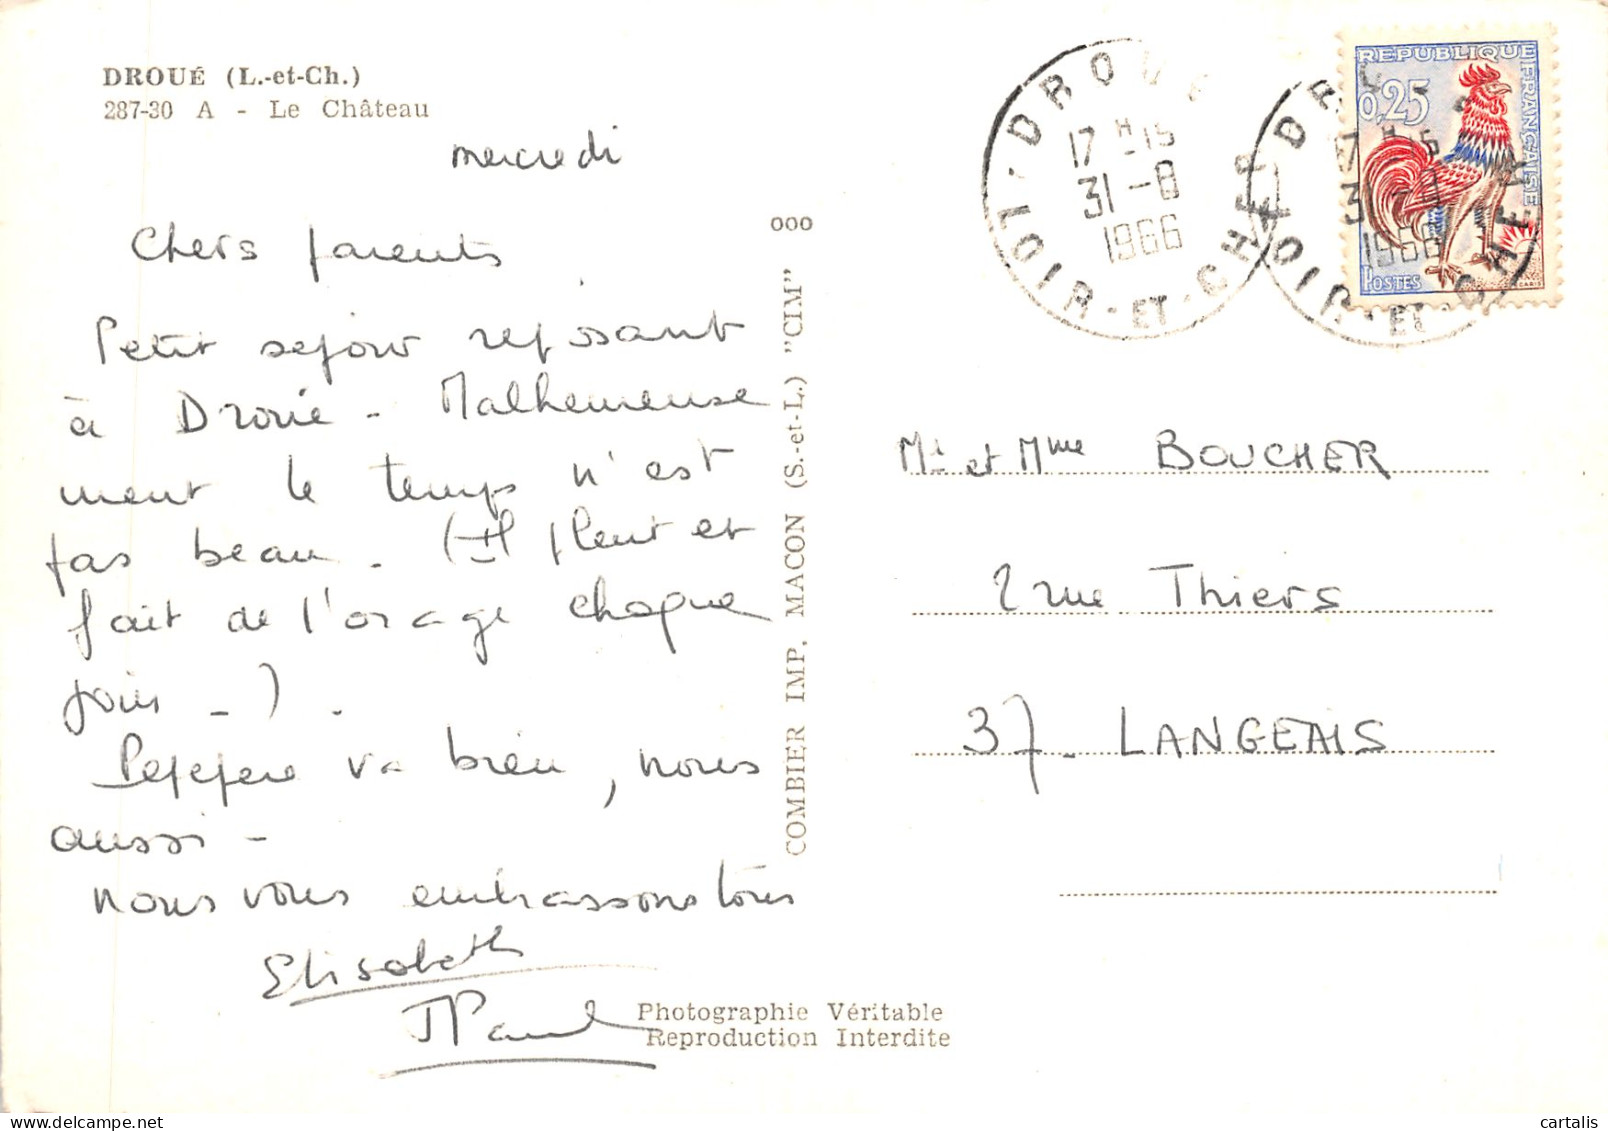 DROUÉ (L.-et-Ch.)
287-30 A - Le Château
mercredi
Chers parents
Petit séjour reposant
à Droué - Malheureuse
ment le temps n'est
pas beau. (Il pleut et
fait de l'orage chaque
jour -).
Pépépère va bien, nous
aussi -
Nous vous embrassons tous
Elisabeth
JPaul
Photographie Véritable
Reproduction Interdite
000
COMBIER IMP. MACON (S.-et-L.) "CIM"
DROUÉ
17 H 15
31-8
1966
LOIR-ET-CHER
DRO
17 H 15
31-
1966
LOIR-ET-CHER
REPUBLIQUE FRANÇAISE
0,25
POSTES
DECARIS
Mr et Mme BOUCHER
2 rue Thiers
37 - LANGEAIS
www.cartalis.com
cartalis